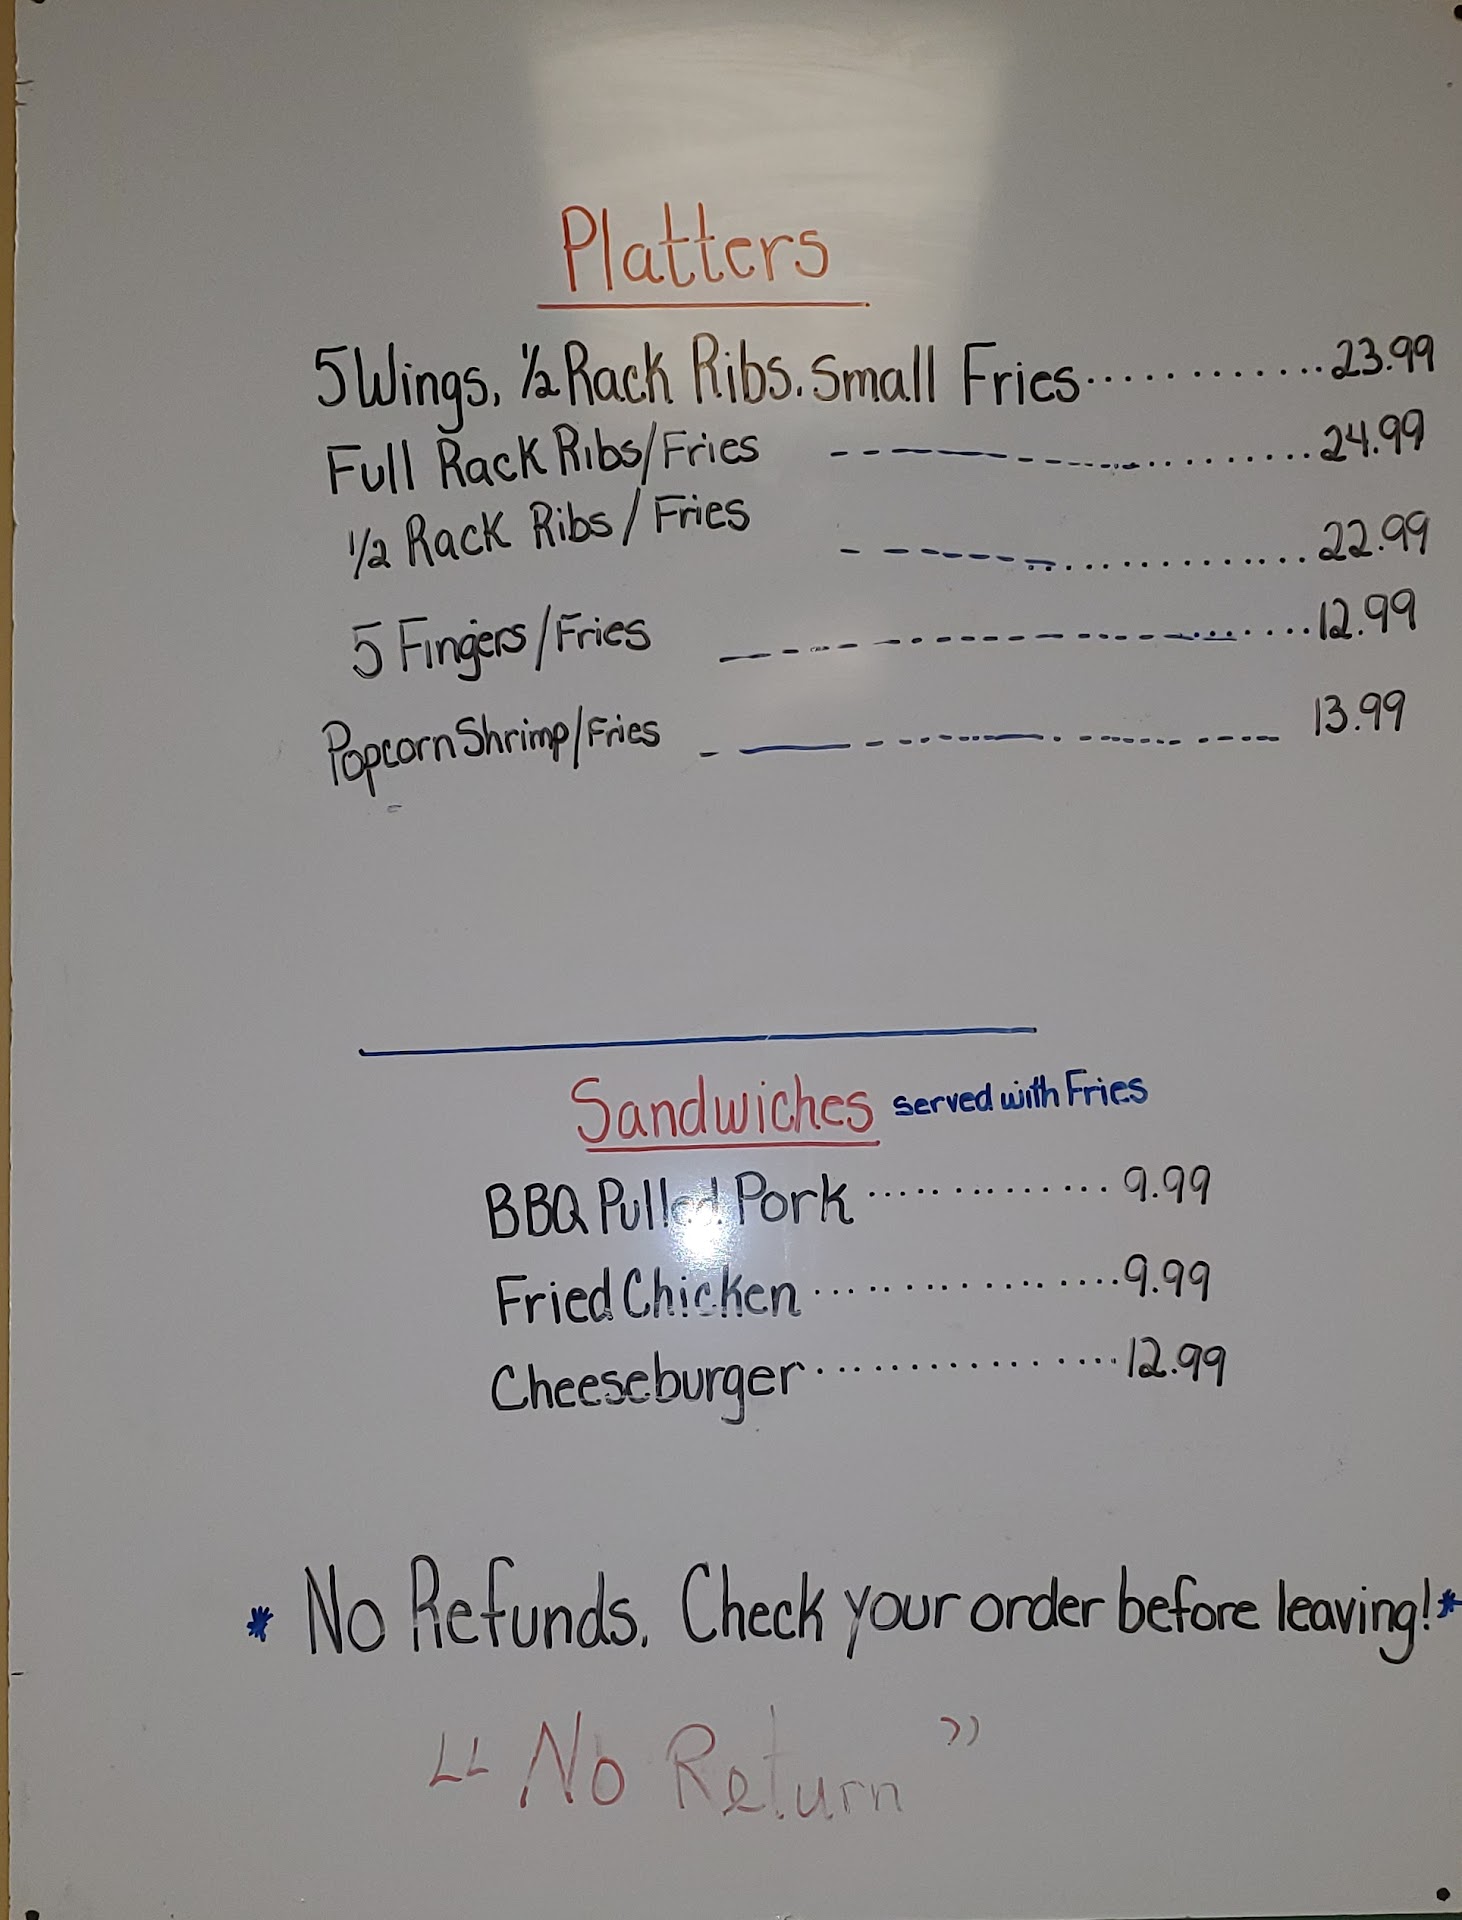 Platters
5 Wings, ½ Rack Ribs. Small Fries............23.99
Full Rack Ribs/Fries ----------.........24.99
½ Rack Ribs/Fries ----------.........22.99
5 Fingers/Fries ----------.........12.99
Popcorn Shrimp/Fries ---------- 13.99
Sandwiches served with Fries
BBQ Pulled Pork ............. 9.99
Fried Chicken ............... 9.99
Cheeseburger ............... 12.99
* No Refunds. Check your order before leaving! *
"No Return"